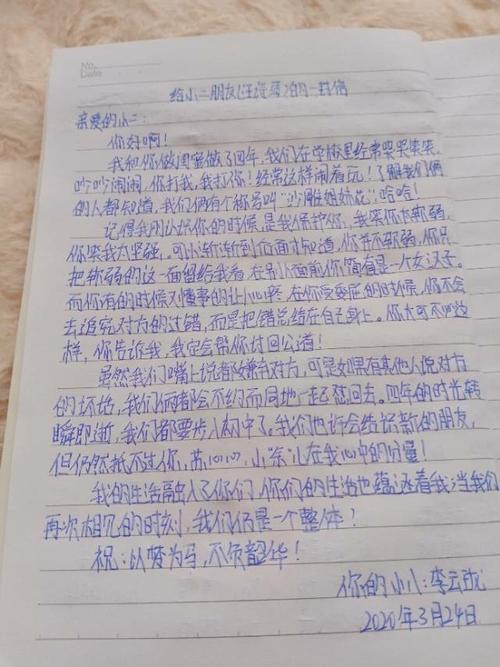 No.
Date
给小二朋友(汪 )的一封信
亲爱的小二:
你好啊!
我和你做闺蜜做了四年,我们在学校里经常哭哭笑笑、
吵吵闹闹,你打我,我打你!经常这样闹着玩!了解我们俩
的人都知道,我们俩有个称号叫“沙雕姐妹花”,哈哈!
记得我们认识你的时候,是我保护你,我笑你太软弱,
你笑我太坚强,可以渐渐到后面才知道,你并不软弱,你只
把软弱的这一面留给我看,在别人面前你简直是一个女汉子。
而你有的时候又懂事的让人心疼,在你受委屈的时候,你不会
去追究对方的过错,而是把错总结在自己身上。你大可不必这
样,你告诉我,我定会帮你讨回公道!
虽然我们嘴上说都嫌弃对方,可是如果有其他人说对方
的坏话,我们俩都会不约而同地一起怼回去。四年的时光转
瞬即逝,我们都要步入初中了。我们也许会结识新的朋友,
但仍然抵不过你,苏 ,小 儿在我心中的分量!
我的生活融入了你们,你们的生活也蕴涵着我,当我们
再次相见的时刻,我们仍是一个整体!
祝:以梦为马,不负韶华!
你的小八:李云
2020年3月24日